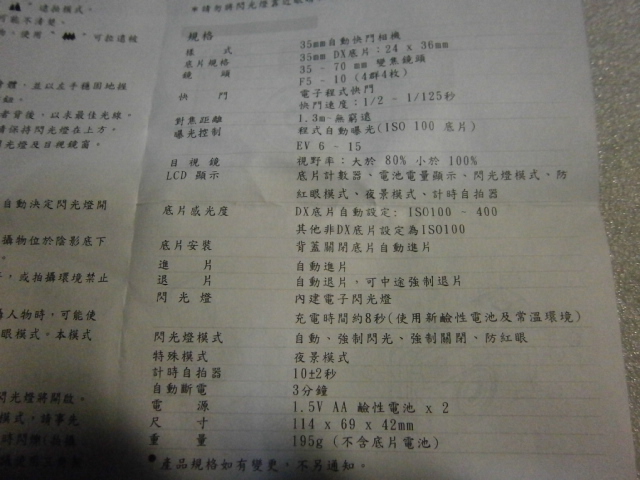 " 璃拍模式。
可能不清楚。
，使用 " " 可拍遠較
身體，並以左手穩固地握
鈕。
者背後，以求最佳光線。
請保持閃光燈在上方。
閃光燈及目視鏡窗。
自動決定閃光燈開
攝物位於陰影底下
，或拍攝環境禁止
人物時，可能使
眼模式。本模式
閃光燈將開啟。
模式，請事先
*請勿將閃光燈靠近眼
規格
樣 式 35mm自動快門相機
底片規格 35mm DX底片：24 x 36mm
鏡 頭 35 ~ 70 mm 變焦鏡頭
F5 - 10 (4群4枚)
快 門 電子程式快門
快門速度：1/2 ~ 1/125秒
對焦距離 1.3m~無窮遠
曝光控制 程式自動曝光(ISO 100 底片)
EV 6 ~ 15
目視鏡 視野率：大於 80% 小於 100%
LCD 顯示 底片計數器、電池電量顯示、閃光燈模式、防
紅眼模式、夜景模式、計時自拍器
底片感光度 DX底片自動設定: ISO100 ~ 400
其他非DX底片設定為ISO100
底片安裝 背蓋關閉底片自動進片
進 片 自動進片
退 片 自動退片，可中途強制退片
閃光燈 內建電子閃光燈
充電時間約8秒(使用新鹼性電池及常溫環境)
閃光燈模式 自動、強制閃光、強制關閉、防紅眼
特殊模式 夜景模式
計時自拍器 10±2秒
自動斷電 3分鐘
電 源 1.5V AA 鹼性電池 x 2
尺 寸 114 x 69 x 42mm
重 量 195g (不含底片電池)
●產品規格如有變更，不另通知。